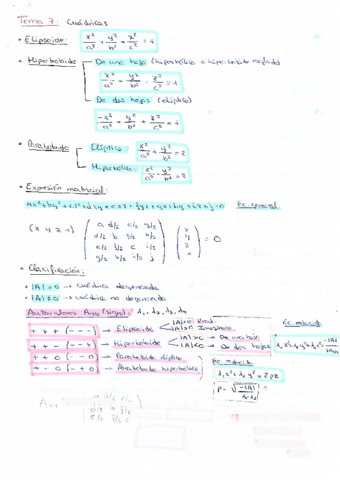 Tema 7: Cuádricas
• Elipsoide: x²/a² + y²/b² + z²/c² = 1
• Hiperboloide
De una hoja (hiperbólico o hiperboloide reglado)
x²/a² + y²/b² - z²/c² = 1
De dos hojas (elíptico)
-x²/a² - y²/b² + z²/c² = 1
• Paraboloide
Elíptico: x²/a² + y²/b² = z
Hiperbólico: x²/a² - y²/b² = z
• Expresión matricial:
Ec. general
(x y z 1) ( a d/2 e/2 g/2 ) ( x )
d/2 b f/2 h/2 y
e/2 f/2 c i/2 z = 0
g/2 h/2 i/2 j 1
• Clasificación:
• |A| = 0 → cuádrica degenerada
• |A| ≠ 0 → cuádrica no degenerada
Autovalores A₄₄ (signo): λ₁, λ₂, λ₃
+ + + (- - -) → Elipsoide
|A|<0 Real
|A|>0 Imaginario
Ec. reducida
+ + - (- - +) → Hiperboloide
De una hoja
|A|<0 → De dos hojas
+ + 0 (- - 0) → Paraboloide elíptico
+ - 0 (- + 0) → Paraboloide hiperbólico
Ec. reducida
λ₁x² + λ₂y² = 2pz